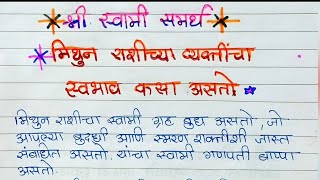 श्री स्वामी समर्थ
मिथुन राशीच्या व्यक्तींचा
स्वभाव कसा असतो
मिथुन राशीचा स्वामी ग्रह बुध असतो ,जो
आपल्या बुद्धी आणि स्मरण शक्तीशी जास्त
संबंधित असतो. यांचा स्वामी गणपती बाप्पा
असतो.